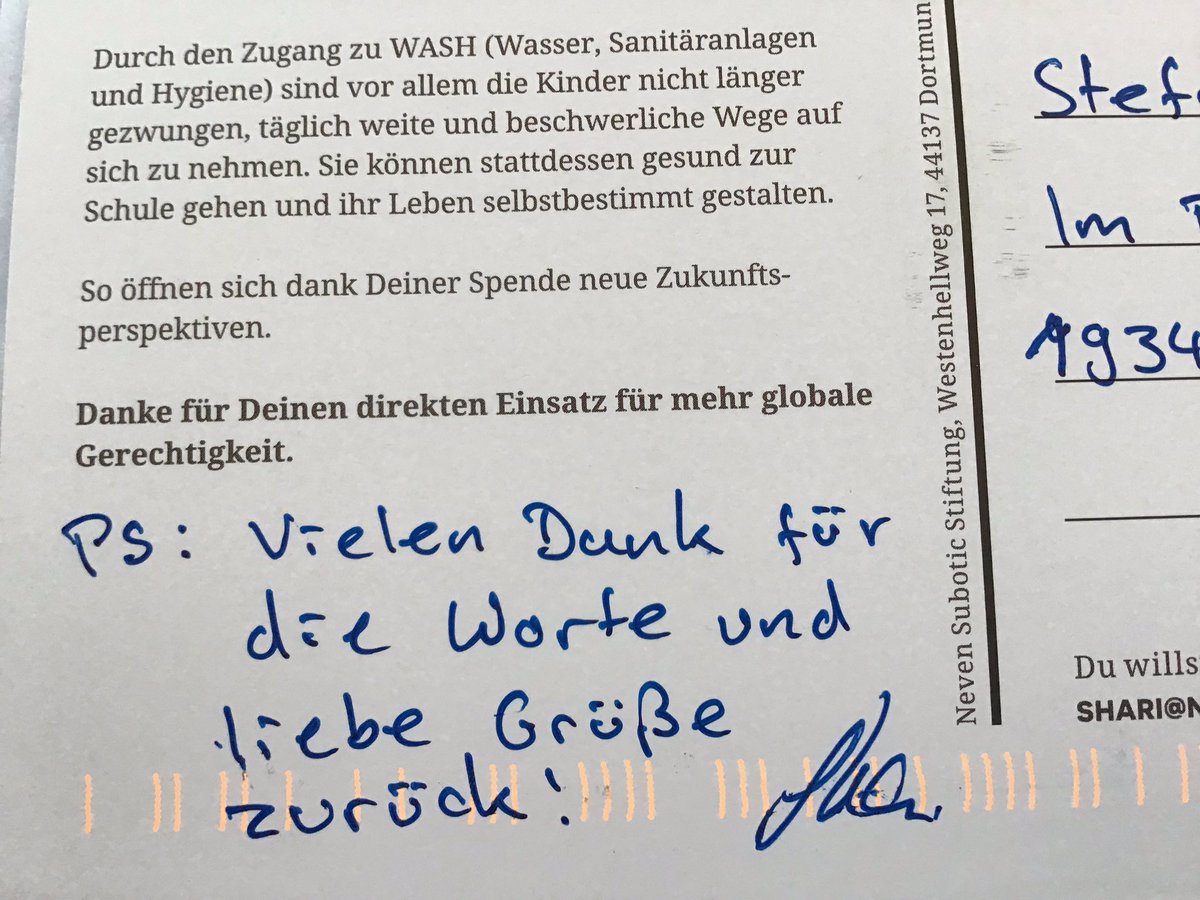 Durch den Zugang zu WASH (Wasser, Sanitäranlagen
und Hygiene) sind vor allem die Kinder nicht länger
gezwungen, täglich weite und beschwerliche Wege auf
sich zu nehmen. Sie können stattdessen gesund zur
Schule gehen und ihr Leben selbstbestimmt gestalten.
So öffnen sich dank Deiner Spende neue Zukunfts-
perspektiven.
Danke für Deinen direkten Einsatz für mehr globale
Gerechtigkeit.
PS: Vielen Dank für
die Worte und
liebe Grüße
zurück!
Neven Subotic Stiftung, Westenhellweg 17, 44137 Dortmun
Stef
Im
1934
Du wills
SHARI@N